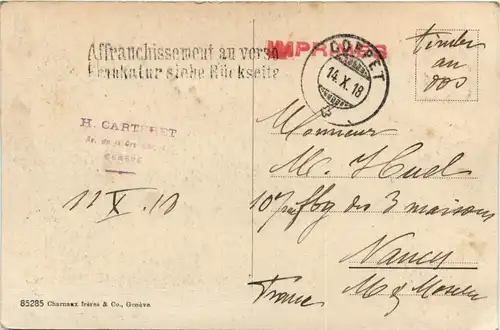 Affranchissement au verso
Frankatur siehe Rückseite
IMPRIMÉS
COPPET
14.X.18
timbre
au
dos
H. CARTERET
GENÈVE
12 X. 18
Monsieur
M. Huel
107 fbg des 3 maisons
Nancy
M & Moselle
France
85285 Charnaux frères & Co., Genève.